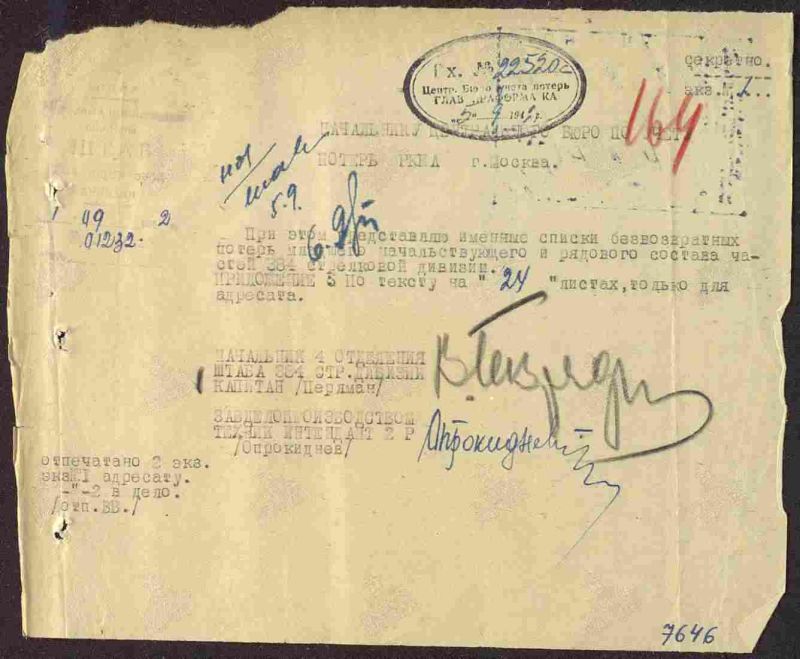 Вх. № 22520с
Центр. Бюро учета потерь
ГЛАВ УПРАФОРМА КА
"5" 9 194 г.
секретно.
экз. № 1.
164
НАЧАЛЬНИКУ ЦЕНТРАЛЬНОГО БЮРО ПО УЧЕТУ
ПОТЕРЬ РККА г.Москва.
5.9.
1 09 2
01232.
При этом представляю именные списки безвозвратных
потерь младшего начальствующего и рядового состава ча-
стей 384 стрелковой дивизии.
ПРИЛОЖЕНИЕ 3 По тексту на " 24 "листах,только для
адресата.
НАЧАЛЬНИК 4 ОТДЕЛЕНИЯ
ШТАБА 384 СТР.ДИВИЗИИ
КАПИТАН /Перяман/
ЗАВДЕЛОПРОИЗВОДСТВОМ
ТЕХНИК ИНТЕНДАНТ 2 Р
/Опрокиднев/
Опрокиднев
отпечатано 2 экз.
экз№1 адресату.
-"-2 в дело.
/отп.ВВ./
7646